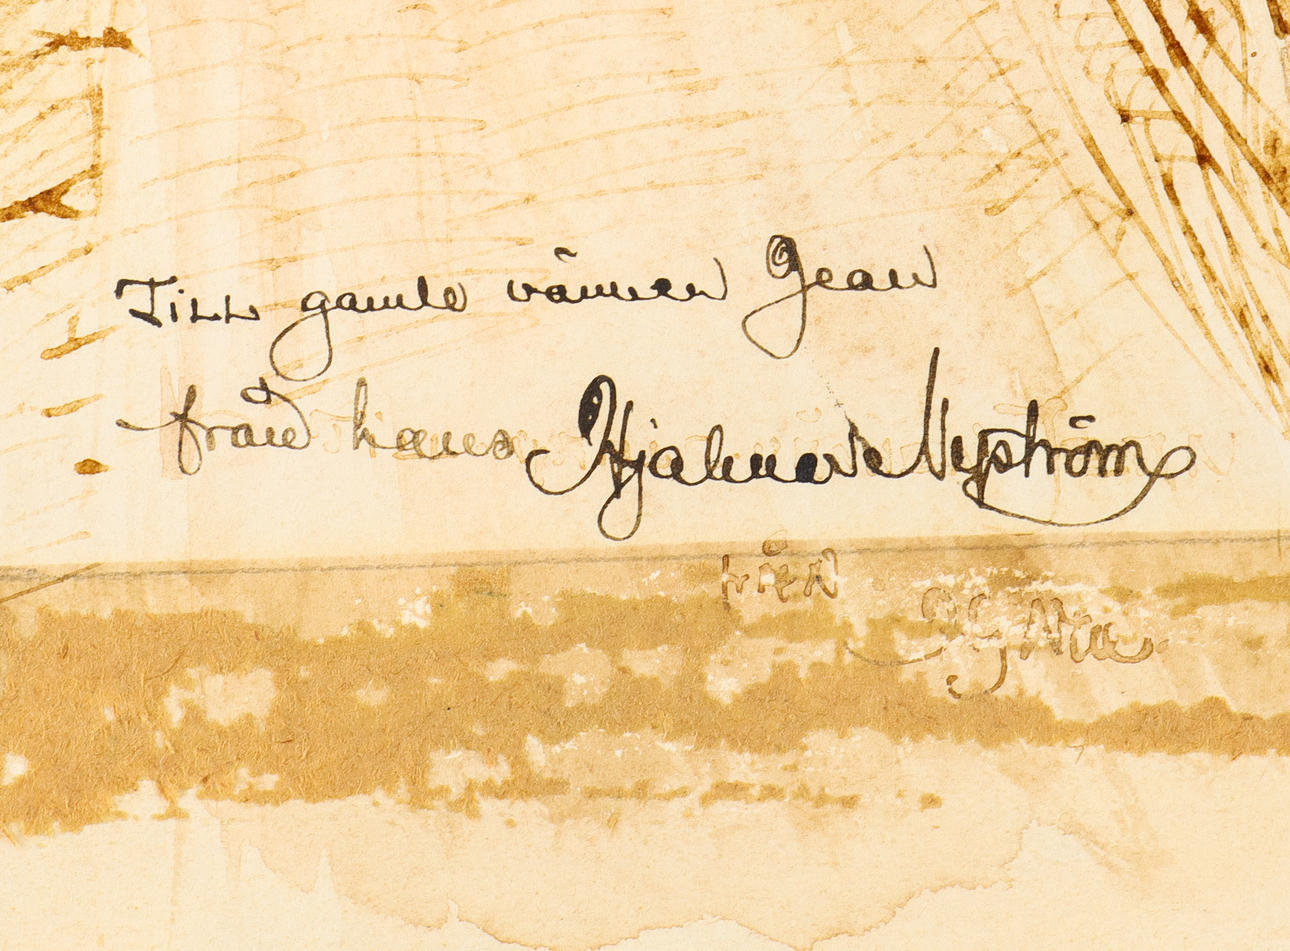 Till gamle vännen Jean
från hans Hjalmar Nyström
från